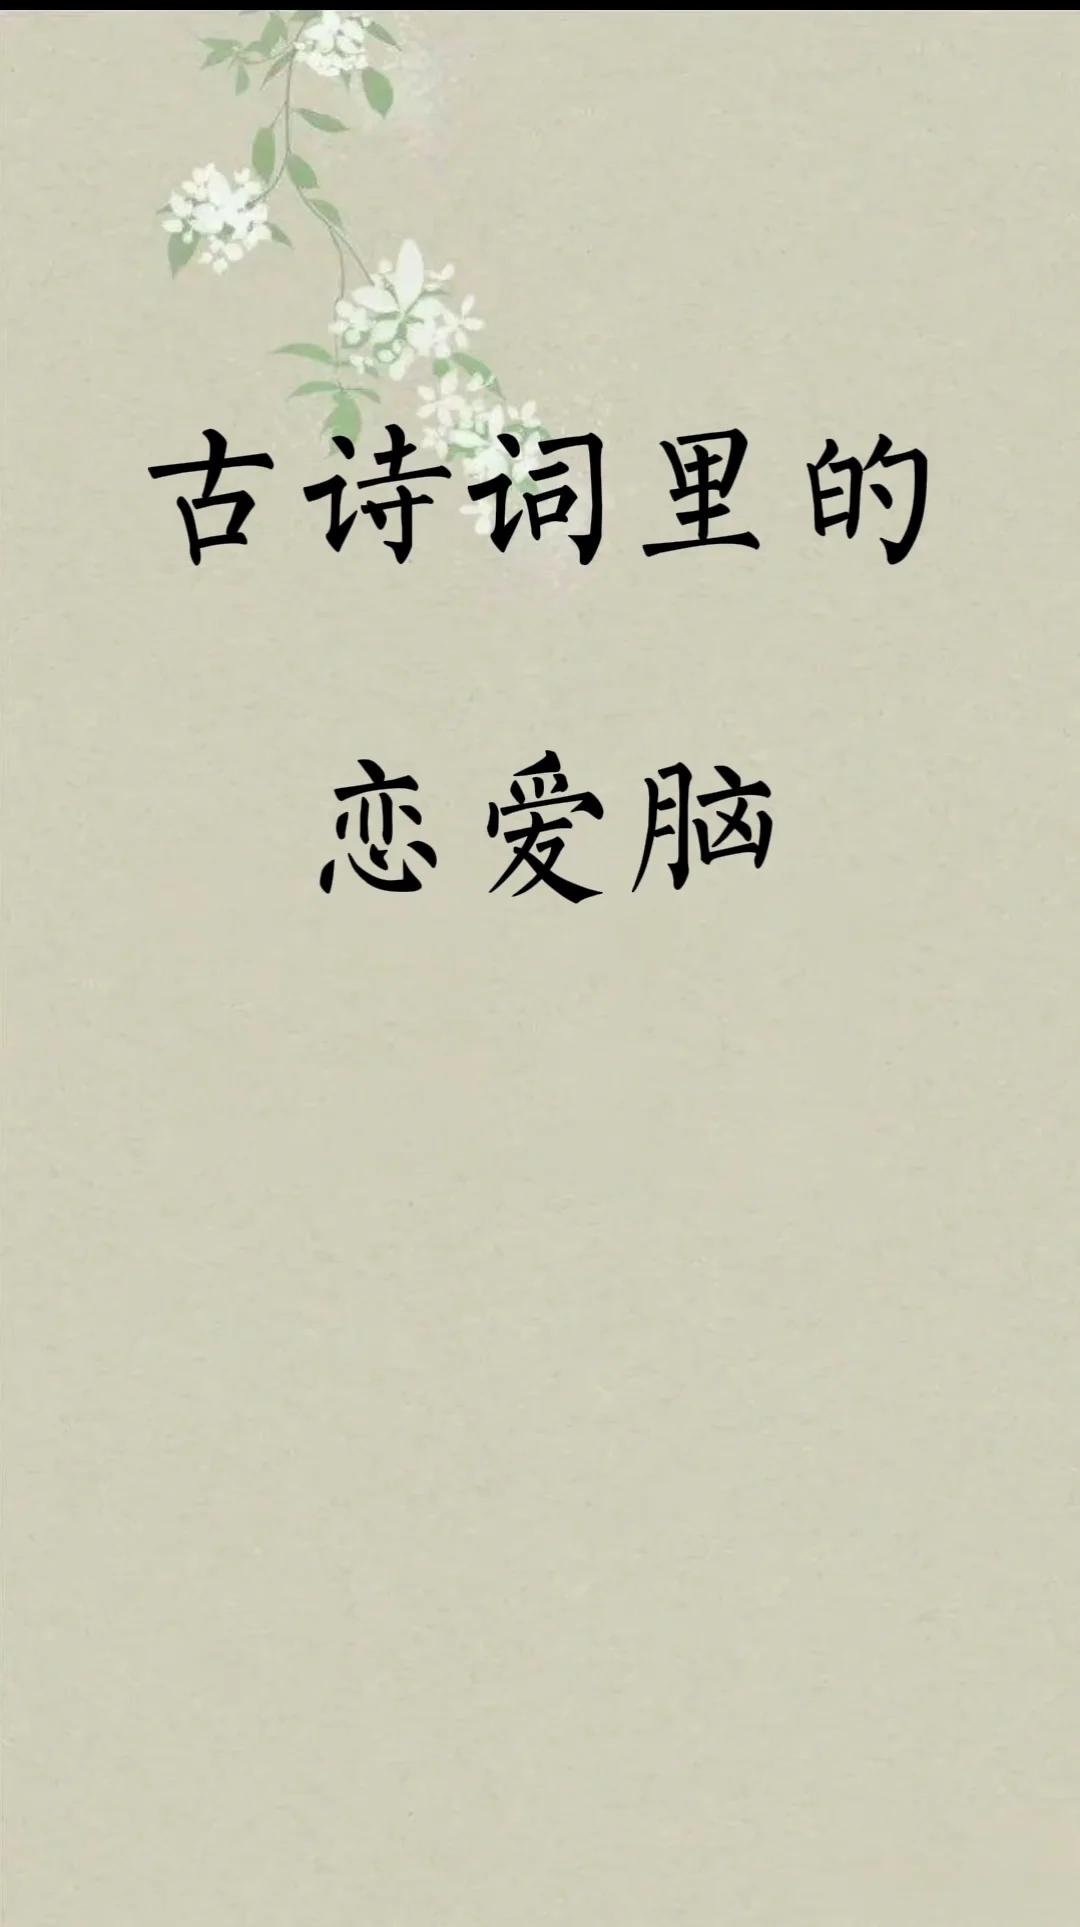 古诗词里的
恋爱脑